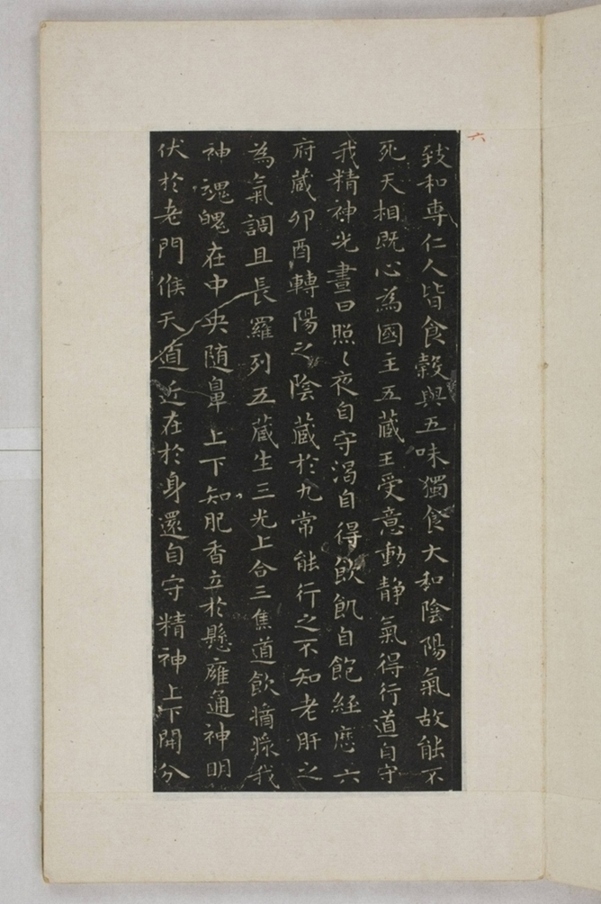 六
致和專仁人皆食穀與五味獨食大和陰陽氣故能不
死天相既心為國主五藏王受意動静氣得行道自守
我精神光晝日照〻夜自守渴自得飲飢自飽経歴六
府藏卯酉轉陽之陰藏於九常能行之不知老肝之
為氣調且長羅列五藏生三光上合三焦道飲醬漿我
神魂魄在中央随鼻上下知肥香立於懸廱通神明
伏於老門候天道近在於身還自守精神上下開分